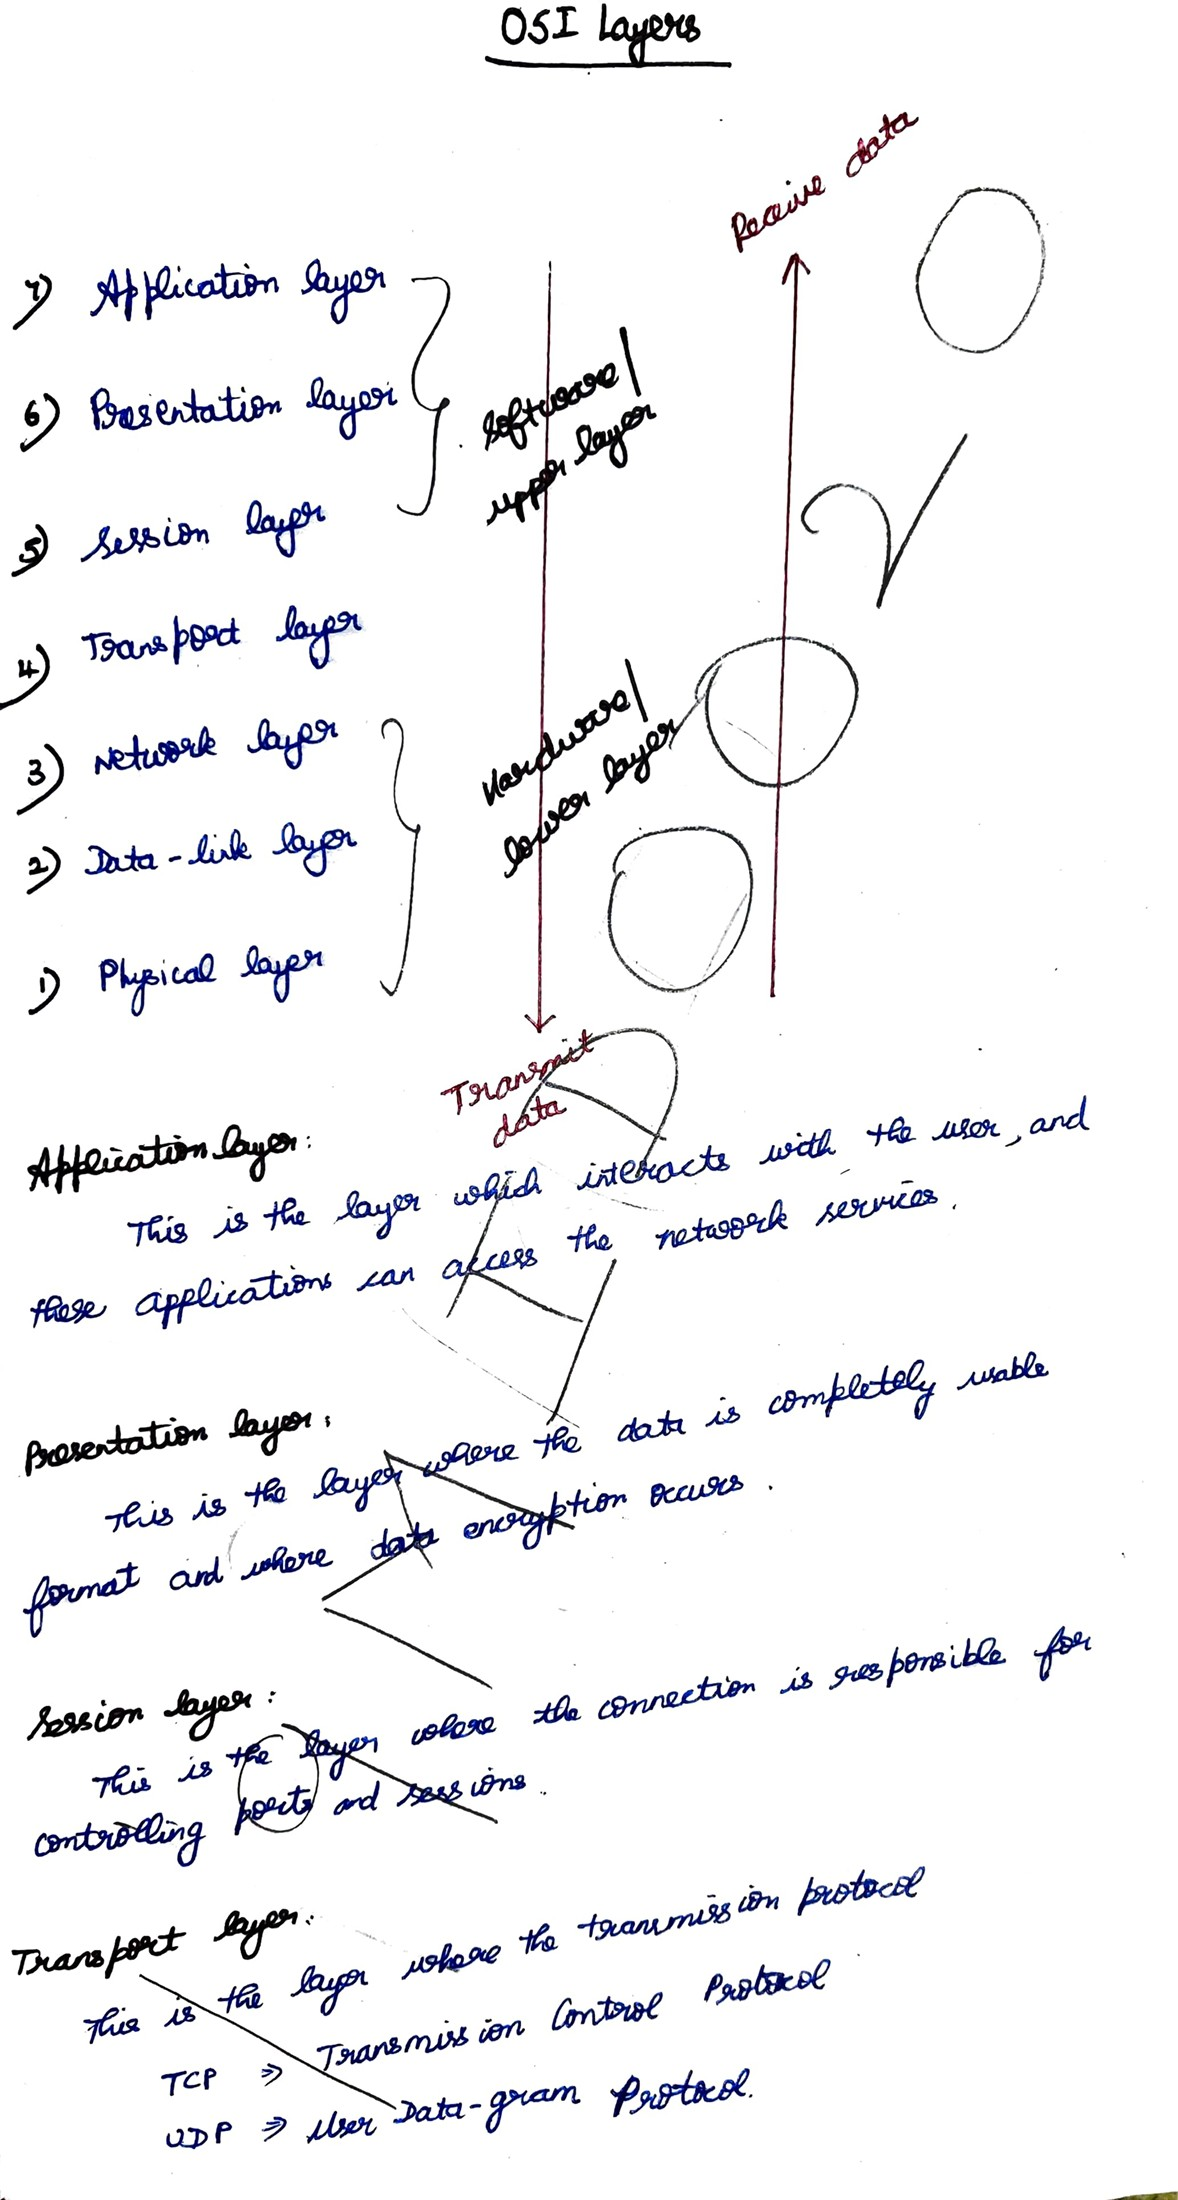 OSI Layers
Receive data
7) Application layer
6) Presentation layer
Software/
upper layer
5) Session layer
4) Transport layer
3) Network layer
Hardware/
lower layer
2) Data-link layer
1) Physical layer
Transmit
data
Application layer:
This is the layer which interacts with the user, and
these applications can access the network services.
Presentation layer:
This is the layer where the data is completely usable
format and where data encryption occurs.
Session layer:
This is the layer where the connection is responsible for
controlling ports and sessions.
Transport layer:
This is the layer where the transmission protocol
TCP => Transmission Control Protocol
UDP => User Data-gram Protocol.